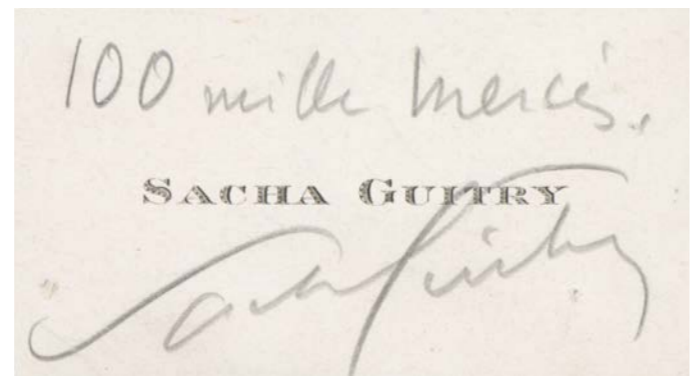 100 mille mercis.
SACHA GUITRY
Sacha Guitry